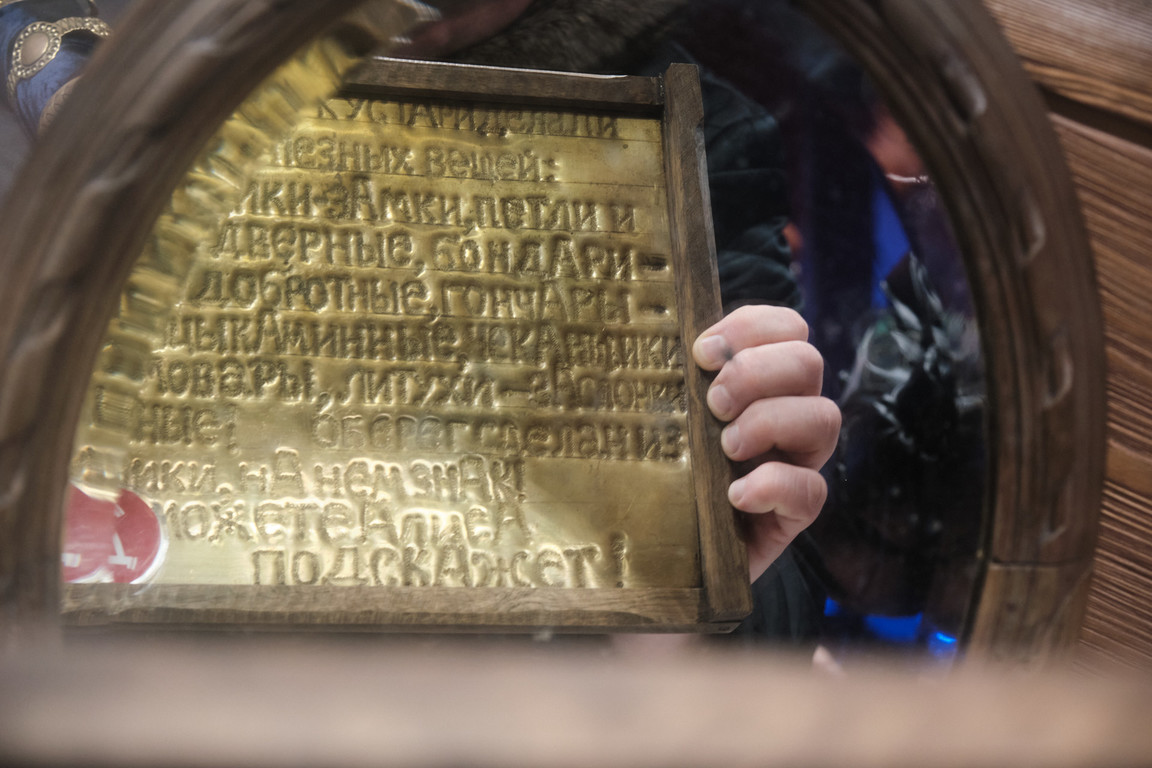 КУСТАРИ ДЕЛАЛИ
ЛЕЗНЫХ ВЕЩЕЙ:
ИКИ-ЗАМКИ, ПЕТЛИ И
ДВЕРНЫЕ, БОНДАРИ-
ДОБРОТНЫЕ, ГОНЧАРЫ-
ЦЫ КАМИННЫЕ, ЧЕКАНЩИКИ
ЛОВЕРЫ, ЛИТУХИ-
ШНЫЕ! ОБЕРЕГ СДЕЛАН ИЗ
ИКИ, НА НЕМ ЗНАК!
МОЖЕТЕ АЛИСА
ПОДСКАЖЕТ!